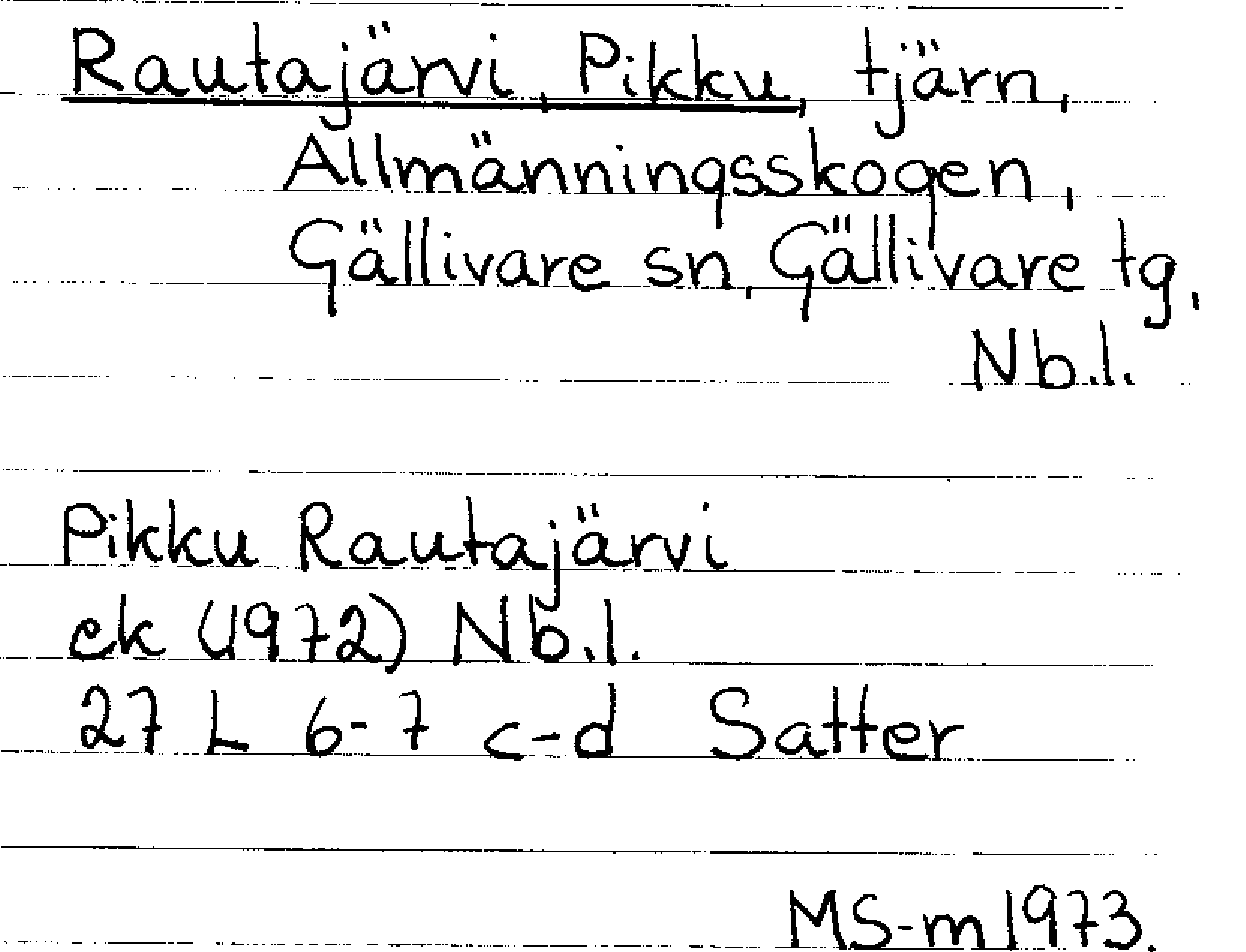 Rautajärvi, Pikku, tjärn,
Allmänningsskogen,
Gällivare sn, Gällivare tg,
Nb.l.
Pikku Rautajärvi
ek (1972) Nb.l.
27 L 6-7 c-d Satter
MS-m 1973.